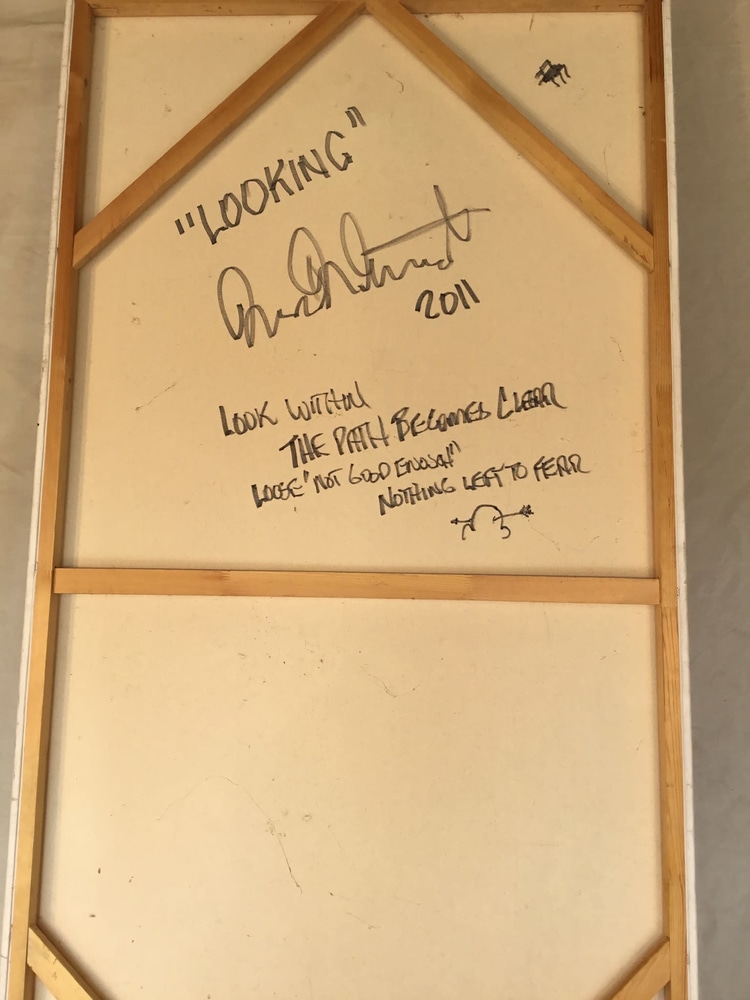 "LOOKING"
2011
LOOK WITHIN
THE PATH BECOMES CLEAR
LOOSE "NOT GOOD ENOUGH"
NOTHING LEFT TO FEAR